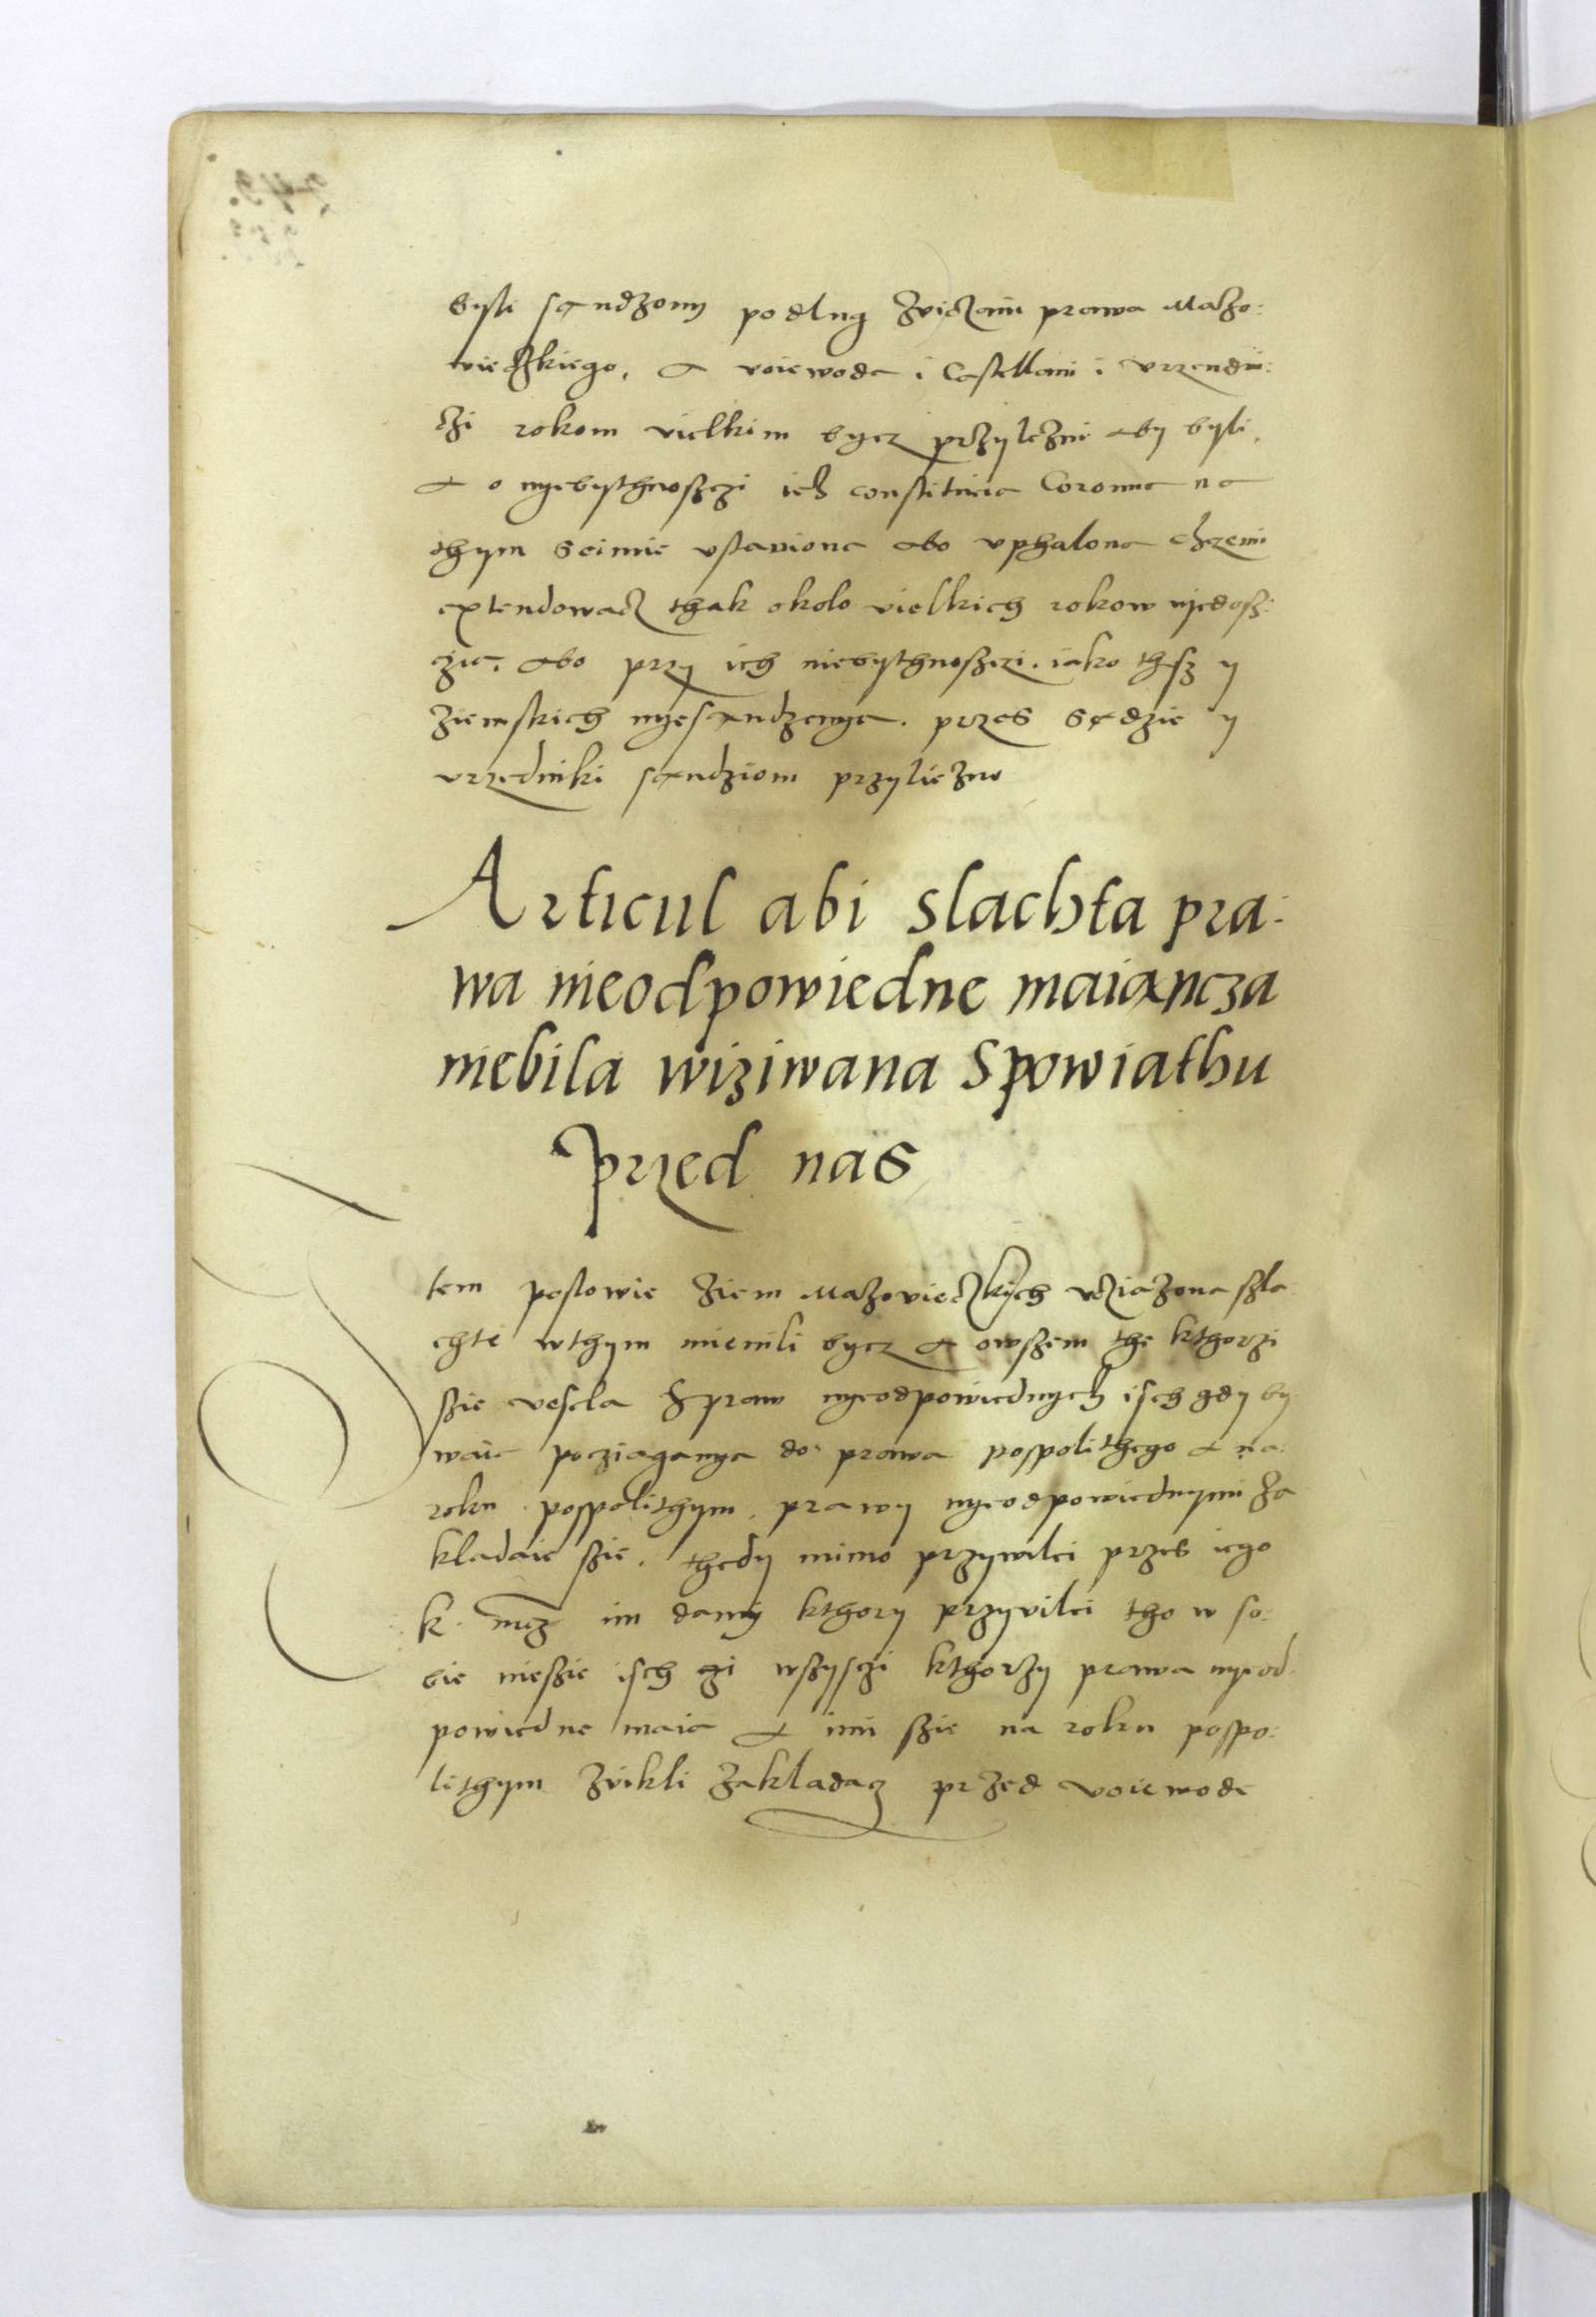 byli sandzony podlug zviczaiu prawa Mazo:
wieczkiego, a voiewoda i Castellani i vrzendni:
czi rokom vielkim bycz przylezni aby byli,
a o nyebythnosczi ich constitucia Coronna na
thym Seimie vstaviona abo vphalona chczemi
extendowacz thak okolo vielkich rokow nyedosz:
zic, abo przy ich niebythnosczi, iako thesz y
ziemskich nyesandzenya, przes sędzie y
vrzedniki sandziom przyliezno
Articul abi slachta pra:
wa nieodpowiedne maiancza
niebila wiziwana Spowiathu
przed nas
Item poslowie Ziem Mazovieczkich vcziazona szla
chte wthym mienili bycz a owszem the kthorzi
szie vesela Sz praw nyeodpowiednych isch gdy by
waie pocziaganya do prawa pospolithego a na
roku pospolithym, prawy nyeodpowiednymi za
kladaie szie, thedy mimo przywilei przes iego
k. mcz im dany kthory przyvilei tho w so:
bie niesie isch czi wszysczi kthorzy prawa nyeod
powiedne maia a imi szie na roku pospo:
lithym zvikli zakladacz przed voiewode